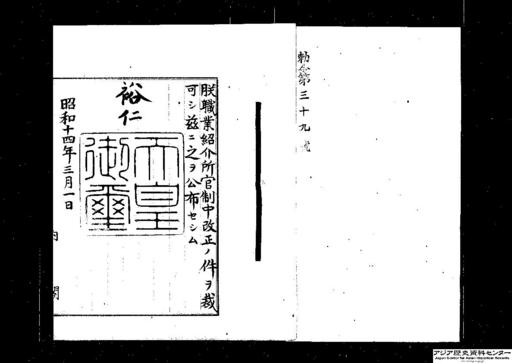 勅令第三十九號
朕職業紹介所官制中改正ノ件ヲ裁
可シ茲ニ之ヲ公布セシム
裕仁
天皇
御璽
昭和十四年三月一日
内閣
アジア歴史資料センター
Japan Center for Asian Historical Records